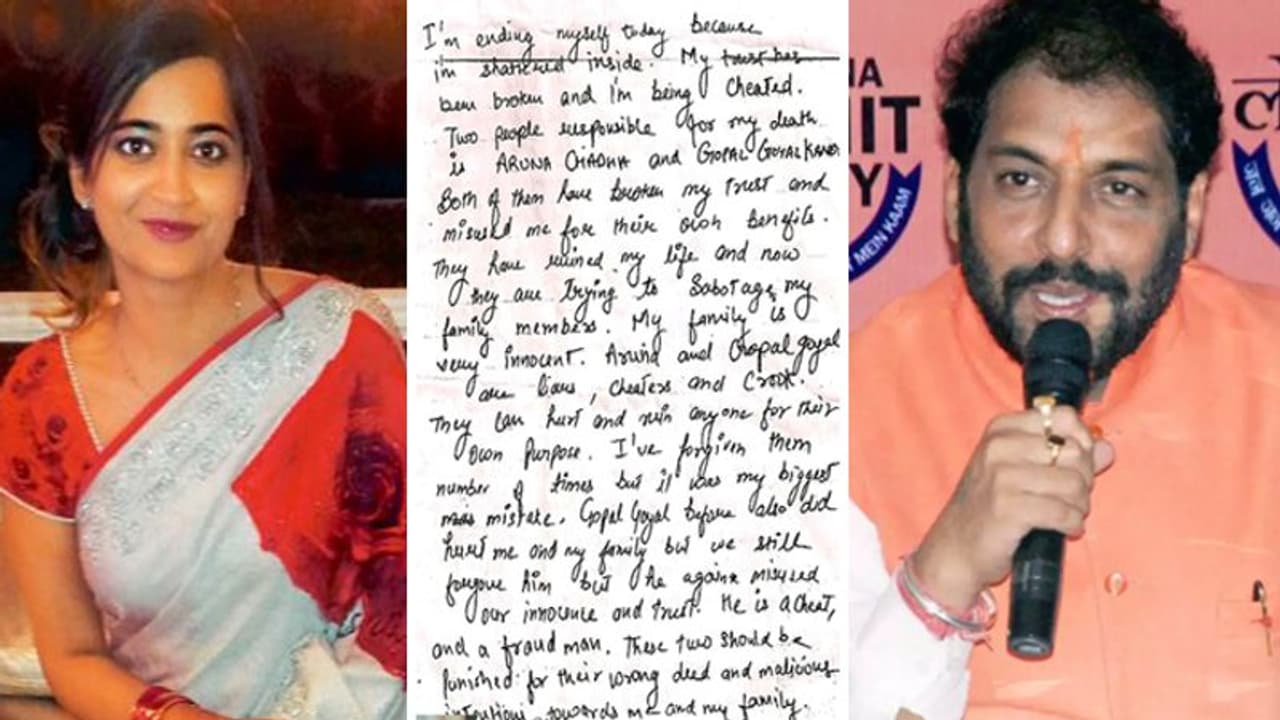 I'm ending myself today because
i'm shattered inside. My trust has
been broken and I'm being cheated.
Two people responsible for my death
is ARUNA CHADHA and GOPAL GOYAL KANDA
Both of them have broken my trust and
misused me for their own benefits.
They have ruined my life and now
they are trying to sabotage my
family members. My family is
very innocent. Aruna and Gopal goyal
are liars, cheaters and crook.
They can hurt and ruin anyone for their
own purpose. I've forgiven them
number of times but it was my biggest
mistake. Gopal Goyal before also did
hurt me and my family but we still
forgave him but he again misused
our innocence and trust. He is a cheat,
and a fraud man. These two should be
punished for their wrong deed and malicious
intentions towards me and my family.
NA
IT
Y
MEIN KAAM
लो